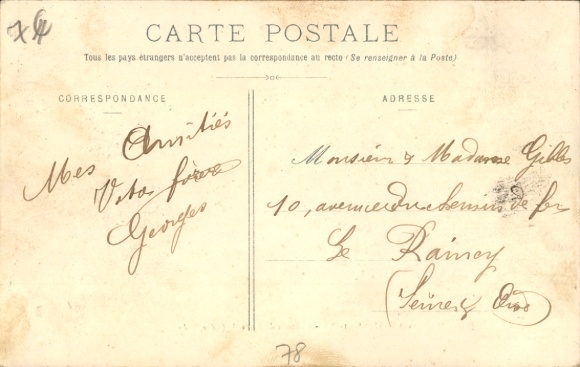 CARTE POSTALE
Tous les pays étrangers n'acceptent pas la correspondance au recto (Se renseigner à la Poste)
CORRESPONDANCE
Mes Amitiés
Georges
ADRESSE
Monsieur & Madame Gilles
10, avenue du chemin de fer
Le Raincy
(Seine & Oise)
78